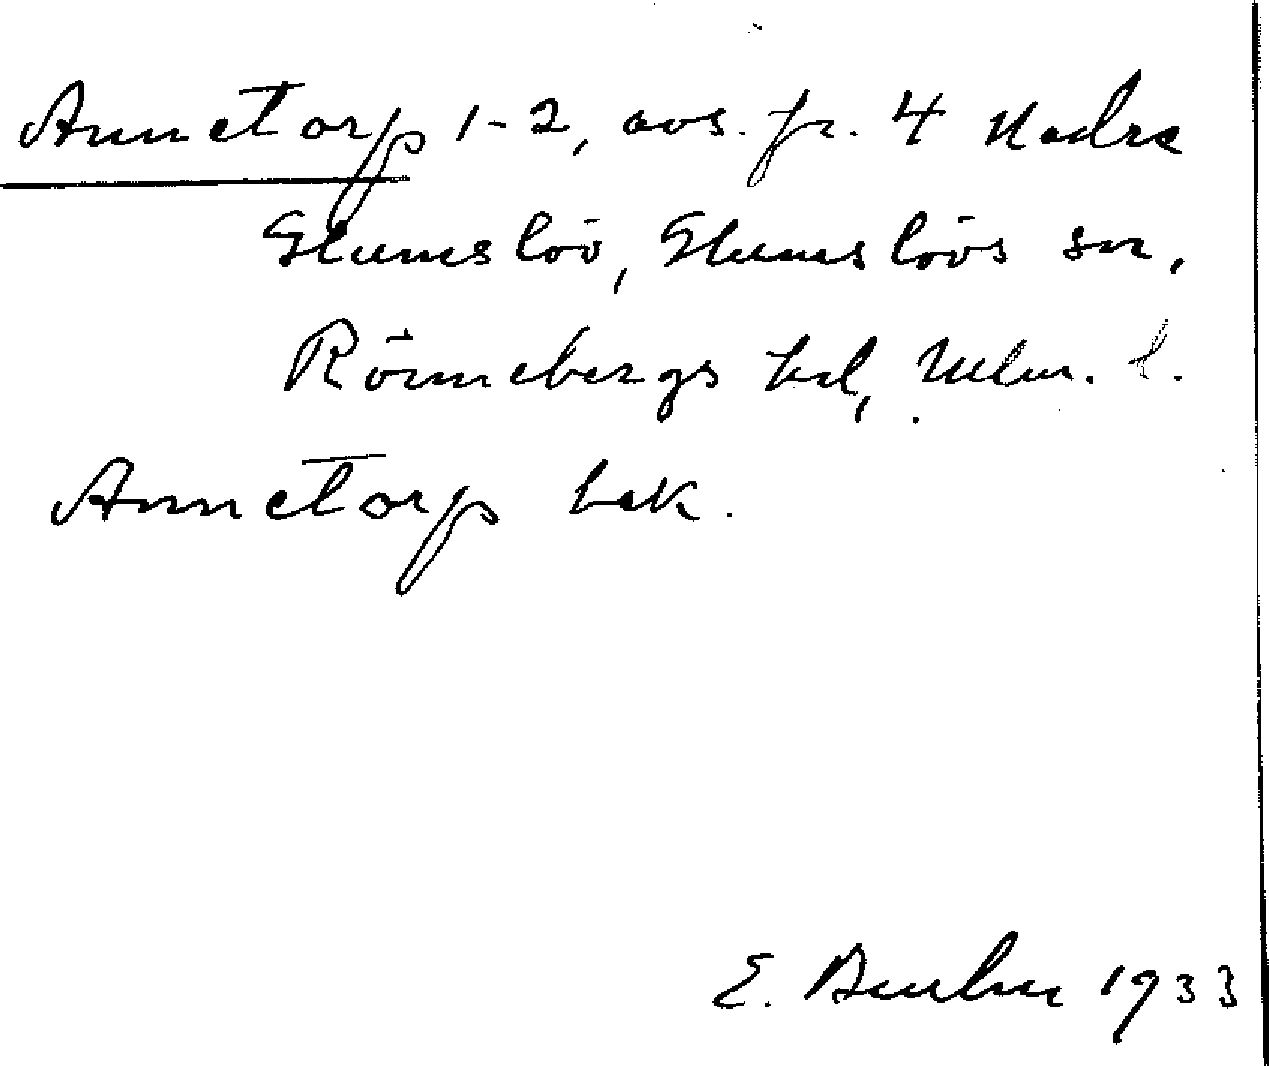 Annetorp 1-2, avs. fr. 4 Nedre
Glumslöv, Glumslövs sn,
Rönnebergs hd, Mlm. l.
Annetorp bek.
E. 1933